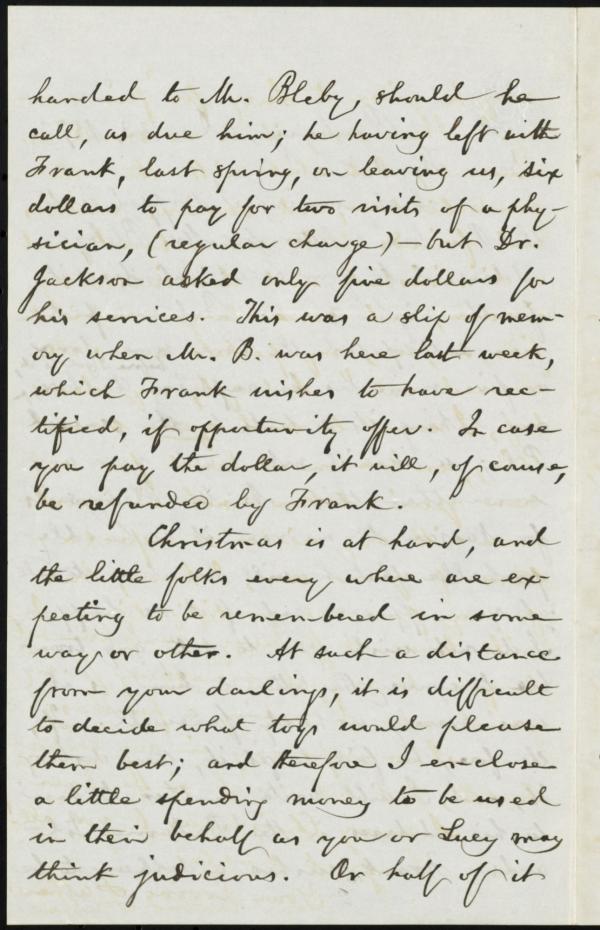 handed to Mr. Bleby, should he
call, as due him; he having left with
Frank, last spring, on leaving us, six
dollars to pay for two visits of a phy-
sician, (regular charge) — but Dr.
Jackson asked only five dollars for
his services. This was a slip of mem-
ory when Mr. B. was here last week,
which Frank wishes to have rec-
tified, if opportunity offer. In case
you pay the dollar, it will, of course,
be refunded by Frank.
Christmas is at hand, and
the little folks every where are ex-
pecting to be remembered in some
way or other. At such a distance
from your darlings, it is difficult
to decide what toys would please
them best; and therefore I enclose
a little spending money to be used
in their behalf as you or Lucy may
think judicious. Or half of it